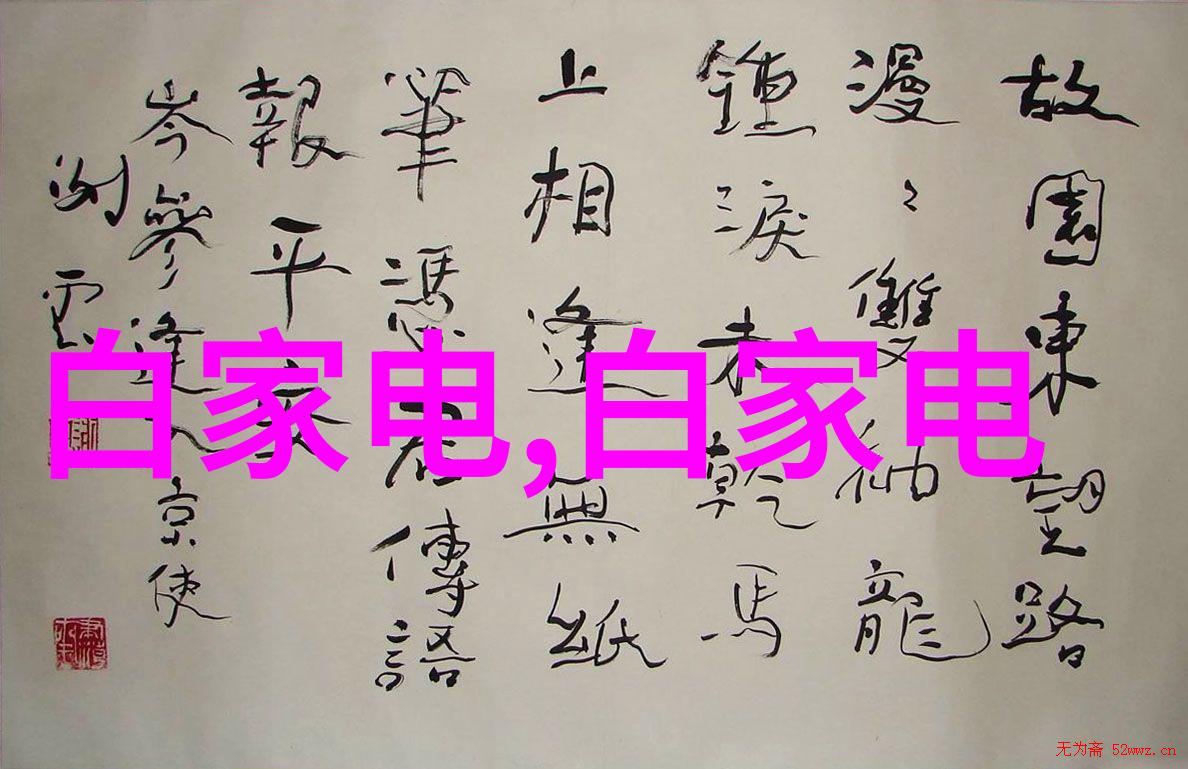 故園東望路
漫〻雙袖龍
鍾淚未乾馬
上相逢無紙
筆憑君傳語
報平安
岑參逢入京使
白家电,白家电
无为斋 52wwz.cn